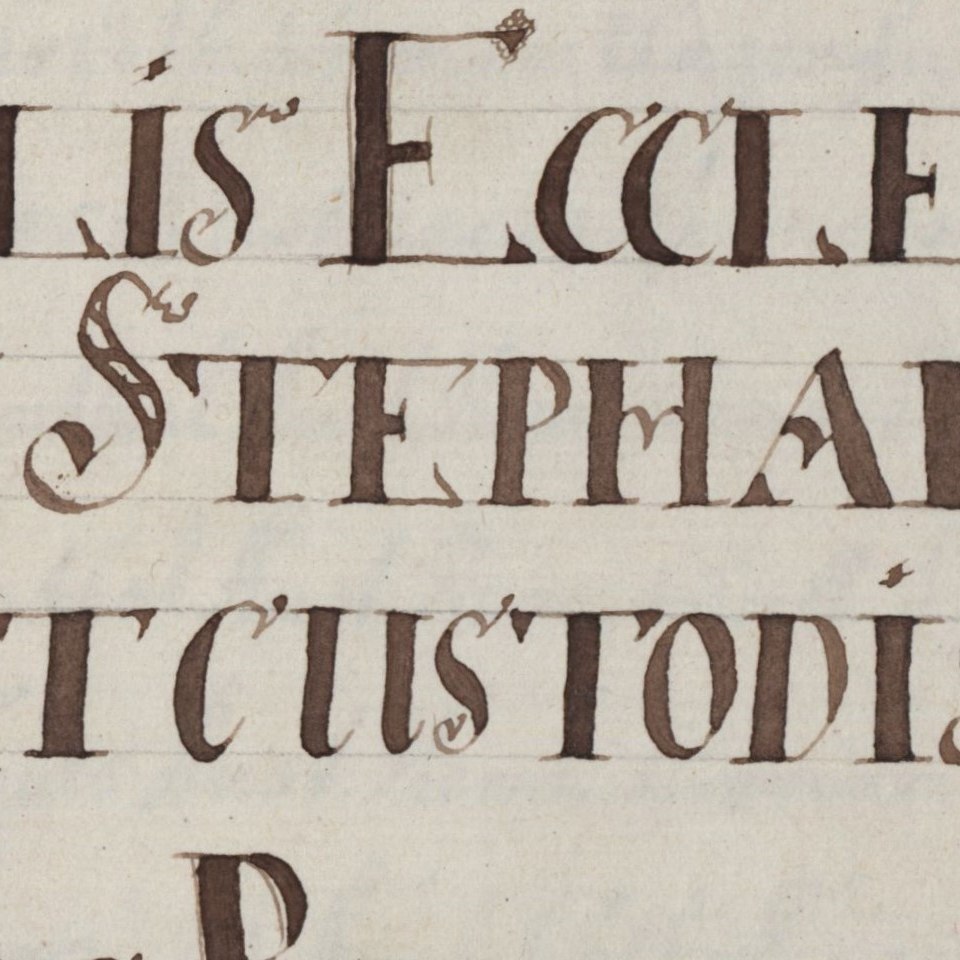 LiS ECCLE
STEPHA
T CUSTODiS
P